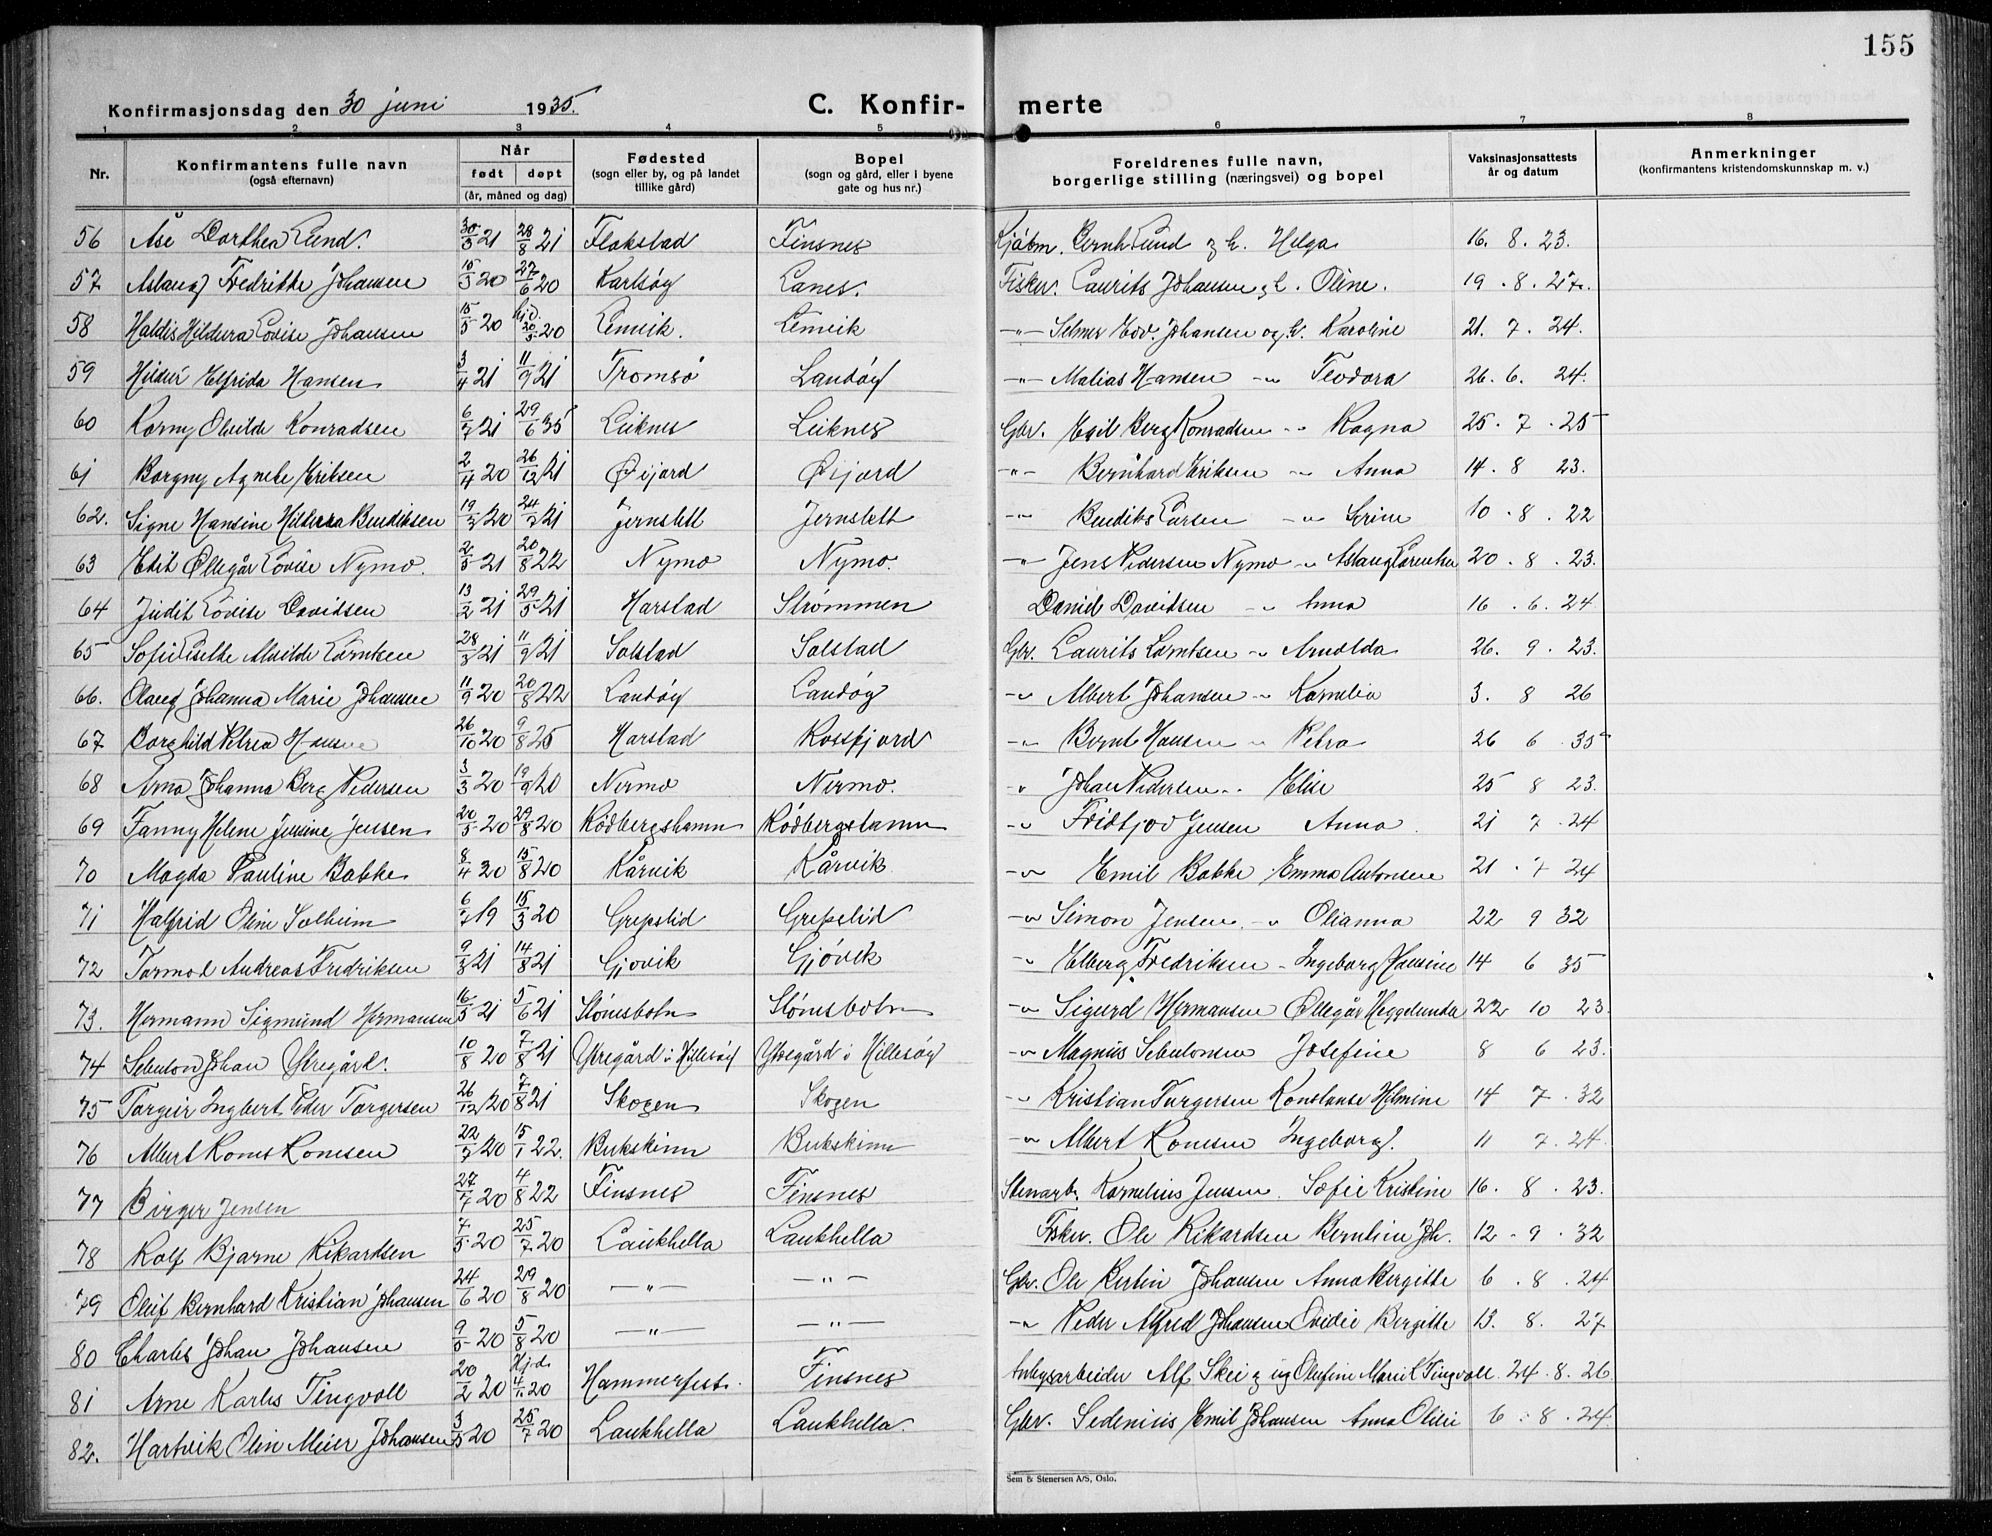 155
Konfirmasjonsdag den 30 juni 1935. C. Konfir- merte
1 2 3 4 5 6 7 8
Nr. Konfirmantens fulle navn (også efternavn) Når født døpt (år, måned og dag) Fødested (sogn eller by, og på landet tillike gård) Bopel (sogn og gård, eller i byene gate og hus nr.) Foreldrenes fulle navn, borgerlige stilling (næringsvei) og bopel Vaksinasjonsattests år og datum Anmerkninger (konfirmantens kristendomskunnskap m. v.)
56 Åse Dorthea Lund. 30/3 21 28/8 21 Flakstad Finsnes Kjøbm. Bernh Lund og h. Helga 16. 8. 23.
57 Aslaug Fredrikke Johansen 15/3 20 27/6 20 Karlsøy Lanes. Fisker. Laurits Johansen og h. Oline. 19. 8. 27.
58 Haldis Hildura Lovise Johansen 15/5 20 hjd. 20/5 20 Lenvik. Lenvik -"- Selmer Edv. Johansen og h. Karoline 21. 7. 24.
59 Hildur Elfrida Hansen 3/4 21 11/9 21 Tromsø Landøy -"- Malias Hansen -"- Teodora 26. 6. 24.
60 Korny Olvilde Konradsen 6/7 21 29/6 35 Leiknes Leiknes Gbr. Egil Berg Konradsen -"- Ragna 25. 7. 25
61 Borgny Agnete Eriksen 2/4 20 26/12 21 Øijord Øijord -"- Bernhard Eriksen -"- Anna 14. 8 23.
62. Signe Hansine Hildura Bendiksen 19/3 20 24/7 21 Jernslett Jernslett -"- Bendiks Larsen -"- Serine 10. 8. 22
63 Edit Øllegår Lovise Nymo. 2/5 21 20/8 22 Nymo Nymo. -"- Jens Pedersen Nymo -"- Aslaug Lorentza 20. 8. 23.
64 Judit Lovise Davidsen 13/2 21 29/5 21 Harstad Strømmen Daniel Davidsen -"- Anna 16. 6. 24.
65 Sofie Lisette Alvilde Lorntsen 28/3 21 11/9 21 Solstad Solstad Gbr. Laurits Lorntsen -"- Arnolda 26. 9. 23.
66. Olaug Johanna Marie Johansen 11/9 20 20/8 22 Landøy Landøy -"- Albert Johansen -"- Kornelia 3. 8 26
67 Borghild Petrea Hansen 26/10 20 9/8 25 Harstad Rossfjord -"- Bernt Hansen -"- Petra 26 6. 35
68 Arna Johanna Berg Pedersen 3/3 20 19/9 20 Nermo Nermo. -"- Johan Pedersen -"- Elise 25 8 23.
69 Fanny Helene Jensine Jensen 20/5 20 29/8 20 Rødbergshamn Rødbergshamn -"- Fridtjov Jensen Anna. 21 7. 24
70 Magda Pauline Bakke 8/4 20 15/8 20 Kårvik Kårvik -"- Emil Bakke Emma Antonsen 21. 7 24
71 Halfrid Oline Solheim 6/7 19 15/3 20 Grepstid Grepstid -"- Simon Jensen -"- Olianna 22 9 32
72 Tormod Andreas Fredriksen 9/3 21 14/8 21 Gjøvik Gjøvik -"- Elberg Fredriksen - Ingeborg Hansine 14 6 35
73. Hermann Sigmund Hermansen 16/5 21 5/6 21 Stønesbotn Stønesbotn -"- Sigurd Hermansen Øllegår Heggelunda 22 10 23.
74 Sebulon Johan Ytregård. 10/8 20 7/8 21 Ytregård i Hillesøy Ytregård i Hillesøy -"- Magnus Sebulonsen Josefine 8 6 23.
75 Torgeir Ingbert Peder Torgersen 26/12 20 7/8 21 Skogen Skogen -"- Kristian Torgersen Konstanse Helmine 14 7. 32
76 Albert Konst Konsen 22/7 20 15/1 22. Bukskinn Bukskinn -"- Albert Konsen Ingeborg. 11 7. 24.
77 Birger Jensen 27/7 20 4/8 22 Finsnes Finsnes Stenarb. Kornelius Jensen. Sofie Kristine 16. 8. 23.
78 Rolf Bjarne Rikardsen 7/5 20 25/7 20 Laukhella Laukhella Fisker. Ole Rikardsen Berntine Joh. 12. 9. 32
79 Oleif Bernhard Kristian Johansen 24/6 20 29/8 20 -"- -"- Gbr. Ole Bertin Johansen Anna Bergitte 6. 8. 24
80 Charles Johan Johansen 9/5 20 5/8 20 -"- -"- -"- Peder Alfred Johansen Ovidie Bergitte 13. 8. 27
81 Arne Karles Tingvoll 20/2 20 Hjd. 4/1 20 Hammerfest. Finsnes Anlegsarbeider Alf Skei og ug Olufine Marie K Tingvoll. 24. 8. 26.
82. Hartvik Olin Meier Johansen 3/5 20 25/7 20 Laukhella Laukhella. Gbr. Sedenius Emil Johansen Anna Oline 6. 8. 24.
Sem & Stenersen A/S, Oslo.